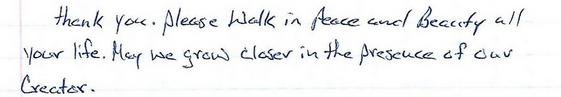 thank you. Please Walk in Peace and Beauty all
your life. May we grow closer in the presence of our
Creator.